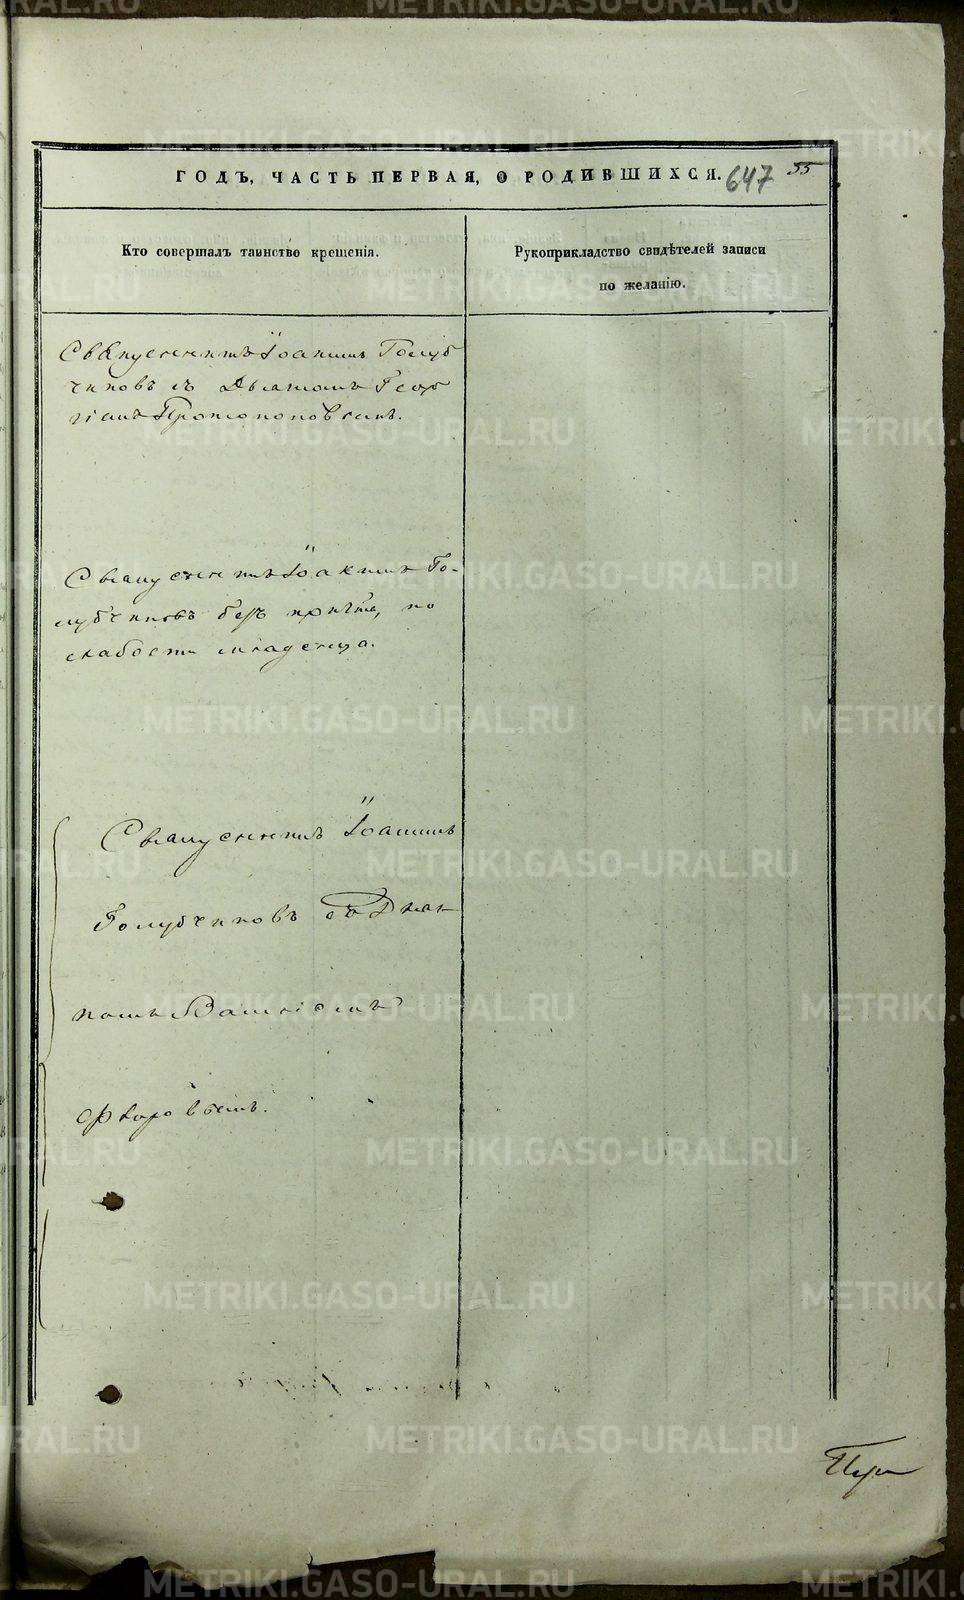 ГОДЪ, ЧАСТЬ ПЕРВАЯ, О РОДИВШИХСЯ. 647 55
Кто совершалъ таинство крещенія.
Рукоприкладство свидѣтелей записи
по желанію.
Священникъ Іоаннъ Голуб
чиковъ съ Діакономъ Геор
гіемъ Протопоповымъ.
Священникъ Іоаннъ Го-
лубчиковъ безъ причта, по
слабости младенца.
Священникъ Іоаннъ
Голубчиковъ съ Діа-
кономъ Василіемъ
METRIKI.GASO-URAL.RU